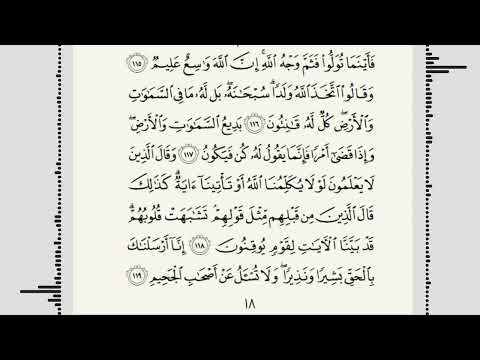 فَأَيْنَمَا تُوَلُّوا۟ فَثَمَّ وَجْهُ ٱللَّهِ ۚ إِنَّ ٱللَّهَ وَٰسِعٌ عَلِيمٌ ١١٥
وَقَالُوا۟ ٱتَّخَذَ ٱللَّهُ وَلَدًا ۗ سُبْحَٰنَهُۥ ۖ بَل لَّهُۥ مَا فِى ٱلسَّمَٰوَٰتِ
وَٱلْأَرْضِ ۖ كُلٌّ لَّهُۥ قَٰنِتُونَ ١١٦ بَدِيعُ ٱلسَّمَٰوَٰتِ وَٱلْأَرْضِ ۖ
وَإِذَا قَضَىٰٓ أَمْرًا فَإِنَّمَا يَقُولُ لَهُۥ كُن فَيَكُونُ ١١٧ وَقَالَ ٱلَّذِينَ
لَا يَعْلَمُونَ لَوْلَا يُكَلِّمُنَا ٱللَّهُ أَوْ تَأْتِينَآ ءَايَةٌ ۗ كَذَٰلِكَ
قَالَ ٱلَّذِينَ مِن قَبْلِهِم مِّثْلَ قَوْلِهِمْ ۘ تَشَٰبَهَتْ قُلُوبُهُمْ ۗ
قَدْ بَيَّنَّا ٱلْءَايَٰتِ لِقَوْمٍ يُوقِنُونَ ١١٨ إِنَّآ أَرْسَلْنَٰكَ
بِٱلْحَقِّ بَشِيرًا وَنَذِيرًا ۖ وَلَا تُسْـَٔلُ عَنْ أَصْحَٰبِ ٱلْجَحِيمِ ١١٩
١٨